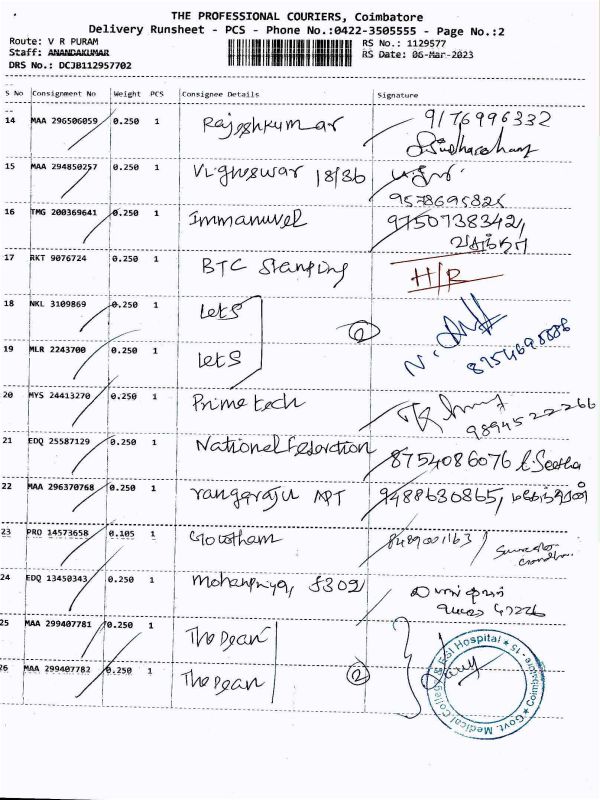 THE PROFESSIONAL COURIERS, Coimbatore
Delivery Runsheet - PCS - Phone No.:0422-3505555 - Page No.:2
Route: V R PURAM
RS No.: 1129577
Staff: ANANDAKUMAR
RS Date: 06-Mar-2023
DRS No.: DCJB112957702
S No Consignment No Weight PCS Consignee Details Signature
14 MAA 296506059 0.250 1 Rajeshkumar 9176996332
15 MAA 294850257 0.250 1 Vigneswar 18/36
9578695826
16 TMG 200369641 0.250 1 Immanuvel 9750738342,
17 RKT 9076724 0.250 1 BTC Stamping H/R
18 NKL 3109869 0.250 1 LetS
2
19 MLR 2243700 0.250 1 LetS 8754698886
20 MYS 24413270 0.250 1 Prime tech
9894522266
21 EDQ 25587129 0.250 1 National Federation 8754086076 Seetha
22 MAA 296370768 0.250 1 rangaraju APT 9488630865,
23 PRO 14573658 0.105 1 Gowtham 8489001163
24 EDQ 13450343 0.250 1 mohanpriya, F302
25 MAA 299407781 0.250 1 The Dean
26 MAA 299407782 0.250 1 The Dean 2
Govt. Medical College & ESI Hospital * Coimbatore - 15 *